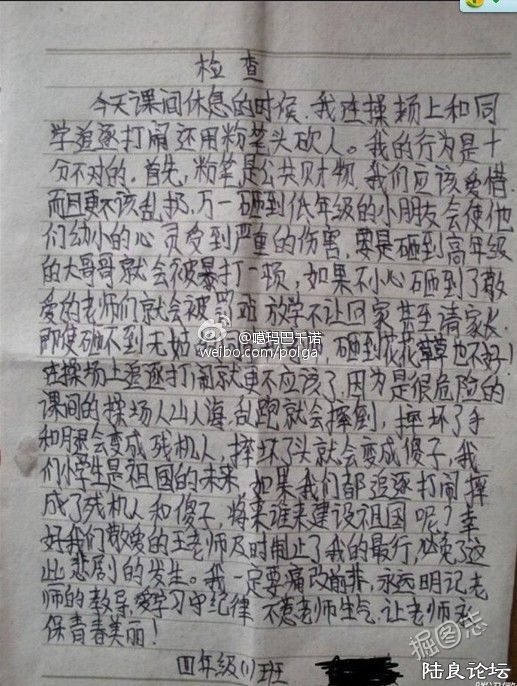 检查
今天课间休息的时候,我在操场上和同
学追逐打闹还用粉笔头砍人。我的行为是十
分不对的。首先,粉笔是公共财物,我们应该爱惜
而且更不该乱扔,万一砸到低年级的小朋友会使他
们幼小的心灵受到严重的伤害,要是砸到高年级
的大哥哥就会被暴打一顿,如果不小心砸到了敬
爱的老师们就会被罚站 放学不让回家甚至请家长
即使砸不到无 砸到花花草草也不好!
在操场上追逐打闹就更不应该了,因为是很危险的
课间的操场人山人海,乱跑就会摔倒,摔坏了手
和腿会变成残机人,摔坏了头就会变成傻子,我
们小学生是祖国的未来,如果我们都追逐打闹摔
成了残机人和傻子,将来谁来建设祖国呢?幸
好我们敬爱的王老师及时制止了我的最行,必免了这
些悲剧的发生。我一定要痛改前非,永远明记老
师的教导,爱学习守纪律 不惹老师生气,让老师永
保青春美丽!
四年级(1)班
@噶玛巴千诺
weibo.com/polga
掘图志
陆良论坛